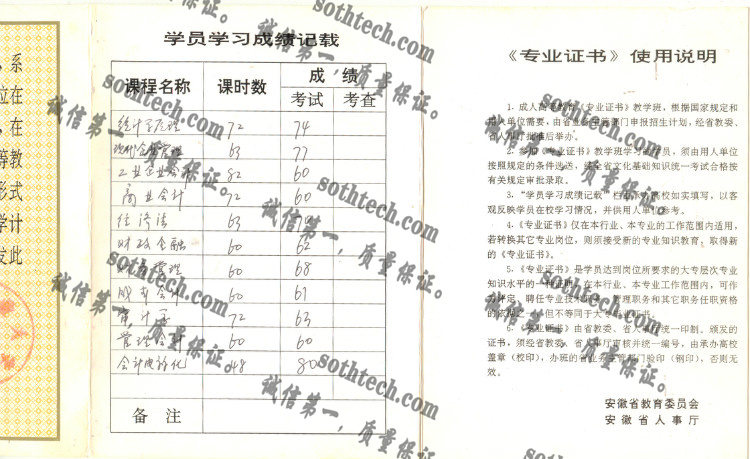 系
位在
，在
等教
形式
学计
发此
学员学习成绩记载
课程名称 课时数 成绩
考试 考查
统计学原理 72 74
现代企业管理 63 77
工业企业会计 82 60
商业会计 72 60
经济法 63
财政金融 60 62
财务管理 60 68
成本会计 60 61
审计学 72 63
管理会计 60 60
会计电算化 48 80
备注
《专业证书》使用说明
1.成人高等教育《专业证书》教学班，根据国家规定和
用人单位需要，由省业务主管部门申报招生计划，经省教委、
省人事厅批准后举办。
2.参加《专业证书》教学班学习的学员，须由用人单位
按照规定的条件选送，经全省文化基础知识统一考试合格按
有关规定审批录取。
3.“学员学习成绩记载”栏由承办高校如实填写，以客
观反映学员在校学习情况，并供用人单位参考。
4.《专业证书》仅在本行业、本专业的工作范围内适用，
若转换其它专业岗位，则须接受新的专业知识教育，取得新
的《专业证书》。
5.《专业证书》是学员达到岗位所要求的大专层次专业
知识水平的一种证明，在本行业、本专业工作范围内，可作
为评定、聘任专业技术职务、管理职务和其它职务任职资格
的依据之一，但不等同于大专毕业证书。
6.《专业证书》由省教委、省人事厅统一印制。颁发的
证书，须经省教委、省人事厅审核并统一编号，由承办高校
盖章（校印），办班的省业务主管部门验印（钢印），否则无
效。
安徽省教育委员会
安徽省人事厅
sothtech.com
诚信第一，质量保证。